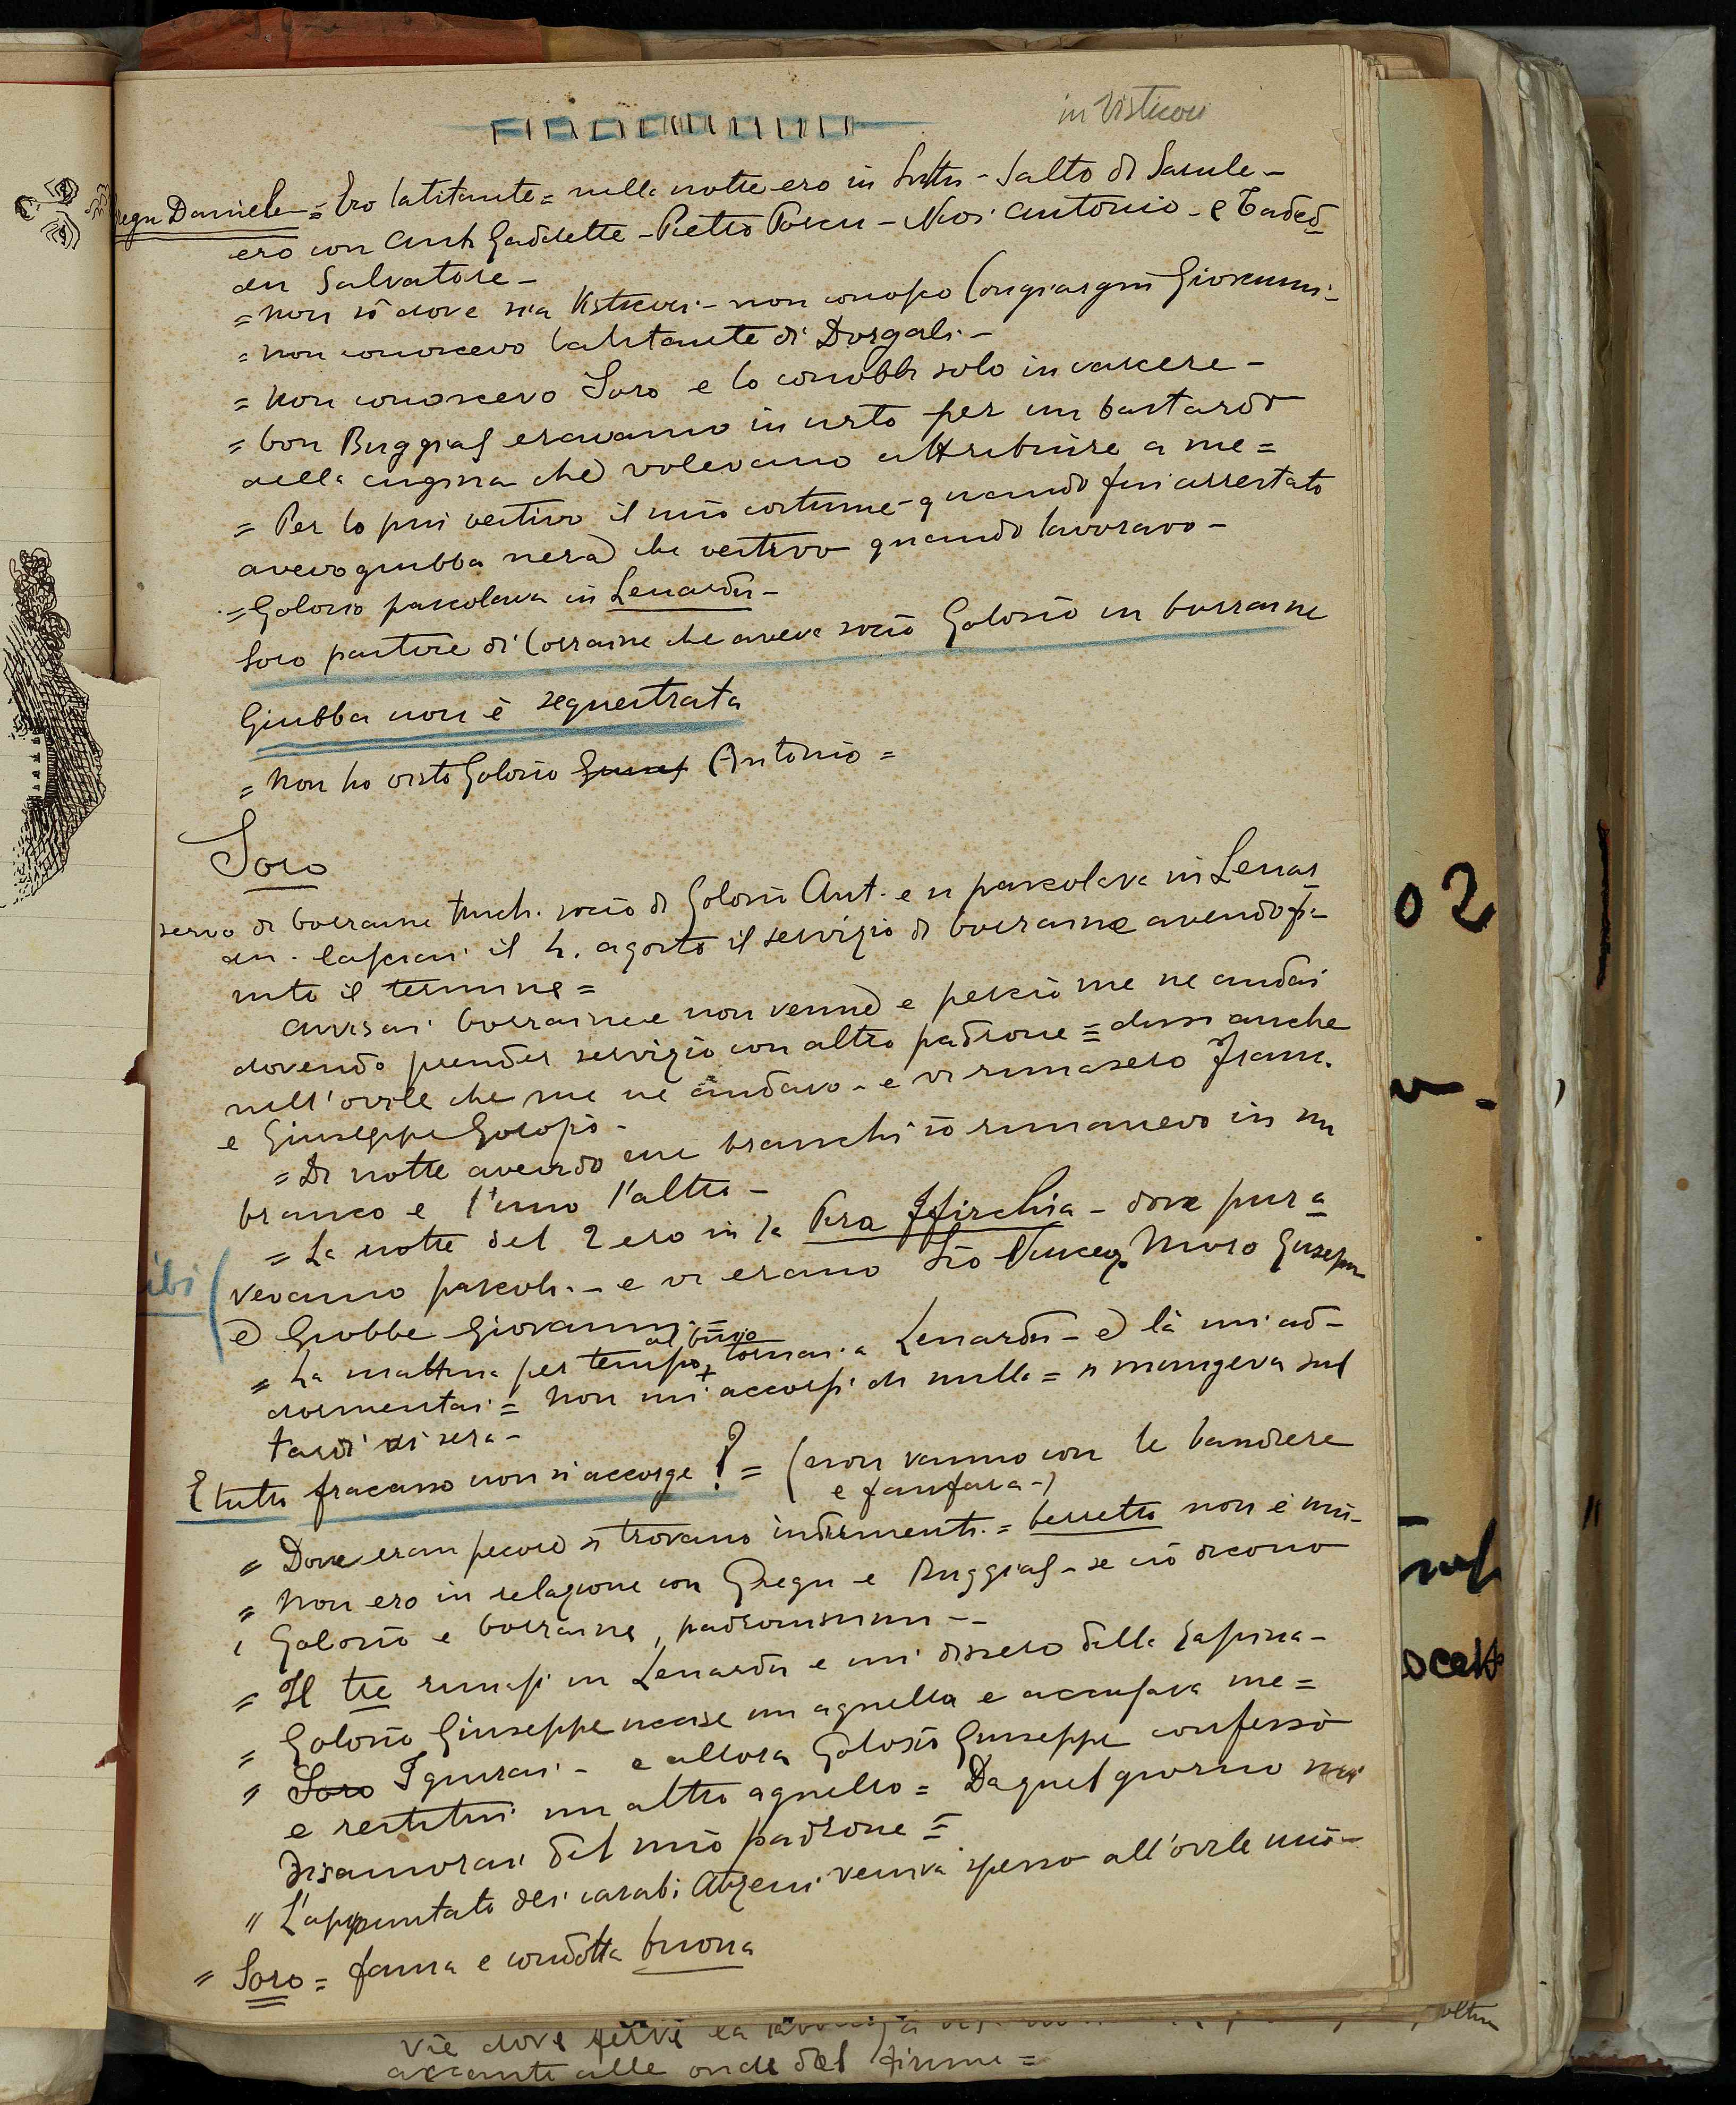 in Visticori
Gregu Daniele = Ero latitante = nella notte ero in - Salto di Sarule -
ero con Ant. Gaddette - Pietro Porcu - Nusi Antonio - e Taded
du Salvatore -
= Non sò dove sia Visticori - non conosco Congiargiu Giovanni -
= non conoscevo latitante di Dorgali -
= Non conoscevo Soro e lo conobbi solo in carcere -
= Con Buggias eravamo in urto per un bastardo
della cugina che volevano attribuire a me =
= Per lo più vestivo il mio costume - quando fui arrestato
avevo giubba nera che vestivo quando lavoravo -
= Golosio pascolava in Lenardu -
Soro pastore di Corraine che aveva socio Golosio in Corraine
Giubba non è sequestrata
= Non ho visto Golosio Antonio =
Soro
servo di Corraine Mich. socio di Golosio Ant. e si pascolava in Lenar
du - lasciai il 4. agosto il servizio di Corraine avendo fi-
nito il termine =
avvisai Corraine e non venne e perciò me ne andai
dovendo prender servizio con altro padrone = dissi anche
nell'ovile che me ne andavo - e vi rimasero Franc.
e Giuseppe Golosio -
= Di notte avendo due branchi io rimanevo in un
branco e l'uno l'altro -
= La notte del 2 ero in sa Pira - dove pur a
ibi
vevamo pascoli - e vi erano Sio Vincenz. Muro Giuseppe
e Giobbe Giovanni =
al buio
= La mattina per tempo + tornai a Lenardu - e là mi ad-
dormentai = Non mi accorsi di nulla = si mungeva sul
tardi di sera -
E tutto fracasso non si accorge? = (non vanno con le bandiere
e fanfara -)
= Dove eran pecore si trovano indumenti = berretto non è mio -
= Non ero in relazione con Gregu e Buggias - se ciò dicono
Golosio e Corraine, padronissimi -
= Il tre rimasi in Lenardu e mi dissero della rapina -
= Golosio Giuseppe uccise un agnello e accusava me =
= Soro Ignorai - e allora Golosio Giuseppe confessò
e restituì un altro agnello = Da quel giorno mi
disamorai del mio padrone =
" L'appuntato dei carab. Atzeni veniva spesso all'ovile mio -
= Soro = fama e condotta buona
02
vie dove
accanto alle onde del fiume =